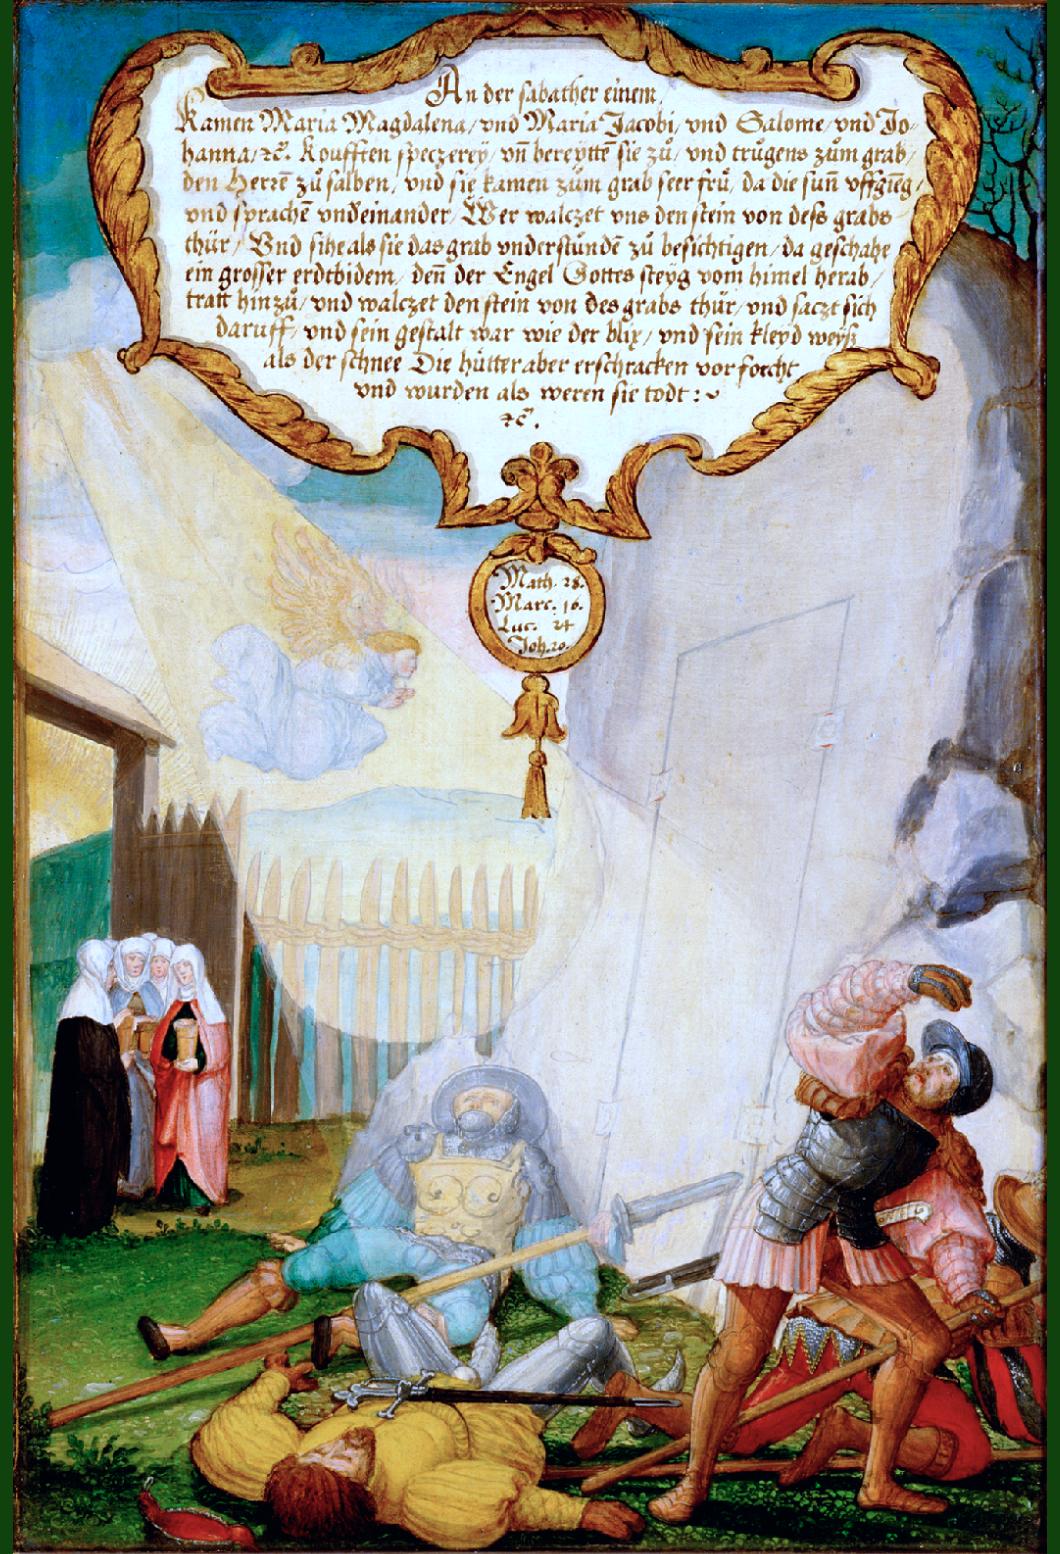 An der sabather einem
Kamen Maria Magdalena/ vnd Maria Jacobi/ vnd Salome/ vnd Jo-
hanna/ ꝛc̄. Koufften speczerey/ vn̄ bereyttē sie zů/ vnd trůgens zům grab/
den Herrē zů salben/ vnd sie kamen zům grab seer frů/ da die sun̄ vffgieng/
vnd sprachē vndeinander/ Wer walczet vns den stein von dess grabs
thür/ Vnd sihe als sie das grab vnderstůndē zů besichtigen/ da geschahe
ein grosser erdtbidem/ den̄ der Engel Gottes steyg vom himel herab/
tratt hinzů/ vnd walczet den stein von des grabs thür/ vnd saczt sich
daruff/ vnd sein gestalt war wie der blix/ vnd sein kleyd weyß
als der schnee Die hütter aber erschracken vor forcht
vnd wurden als weren sie todt :~
ꝛc̄.
Math. 28.
Marc. 16.
Luc. 24
Joh. 20.